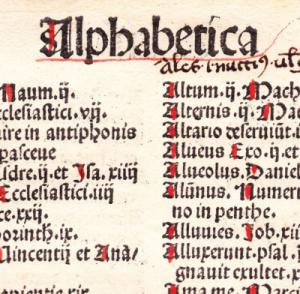 Alphabetica
Naum.ij.
cclesiastici.vij.
uire in antiphonis
pasceue
sdre.ij.et Isa.xiiij
Ecclesiastici.iiij
ce.xxij.
orinth.ix.
Vincentij et Ana/
Altum.ij.Mach
Alternis.ij.Mach
Altario deseruiūt.
Alueus Exo.ij.et
Alueolus.Daniel
Alūnus.Numer
no in penthe.
Alluuies.Iob.xiij
Alluxerunt.psal.
gnauit exultet.